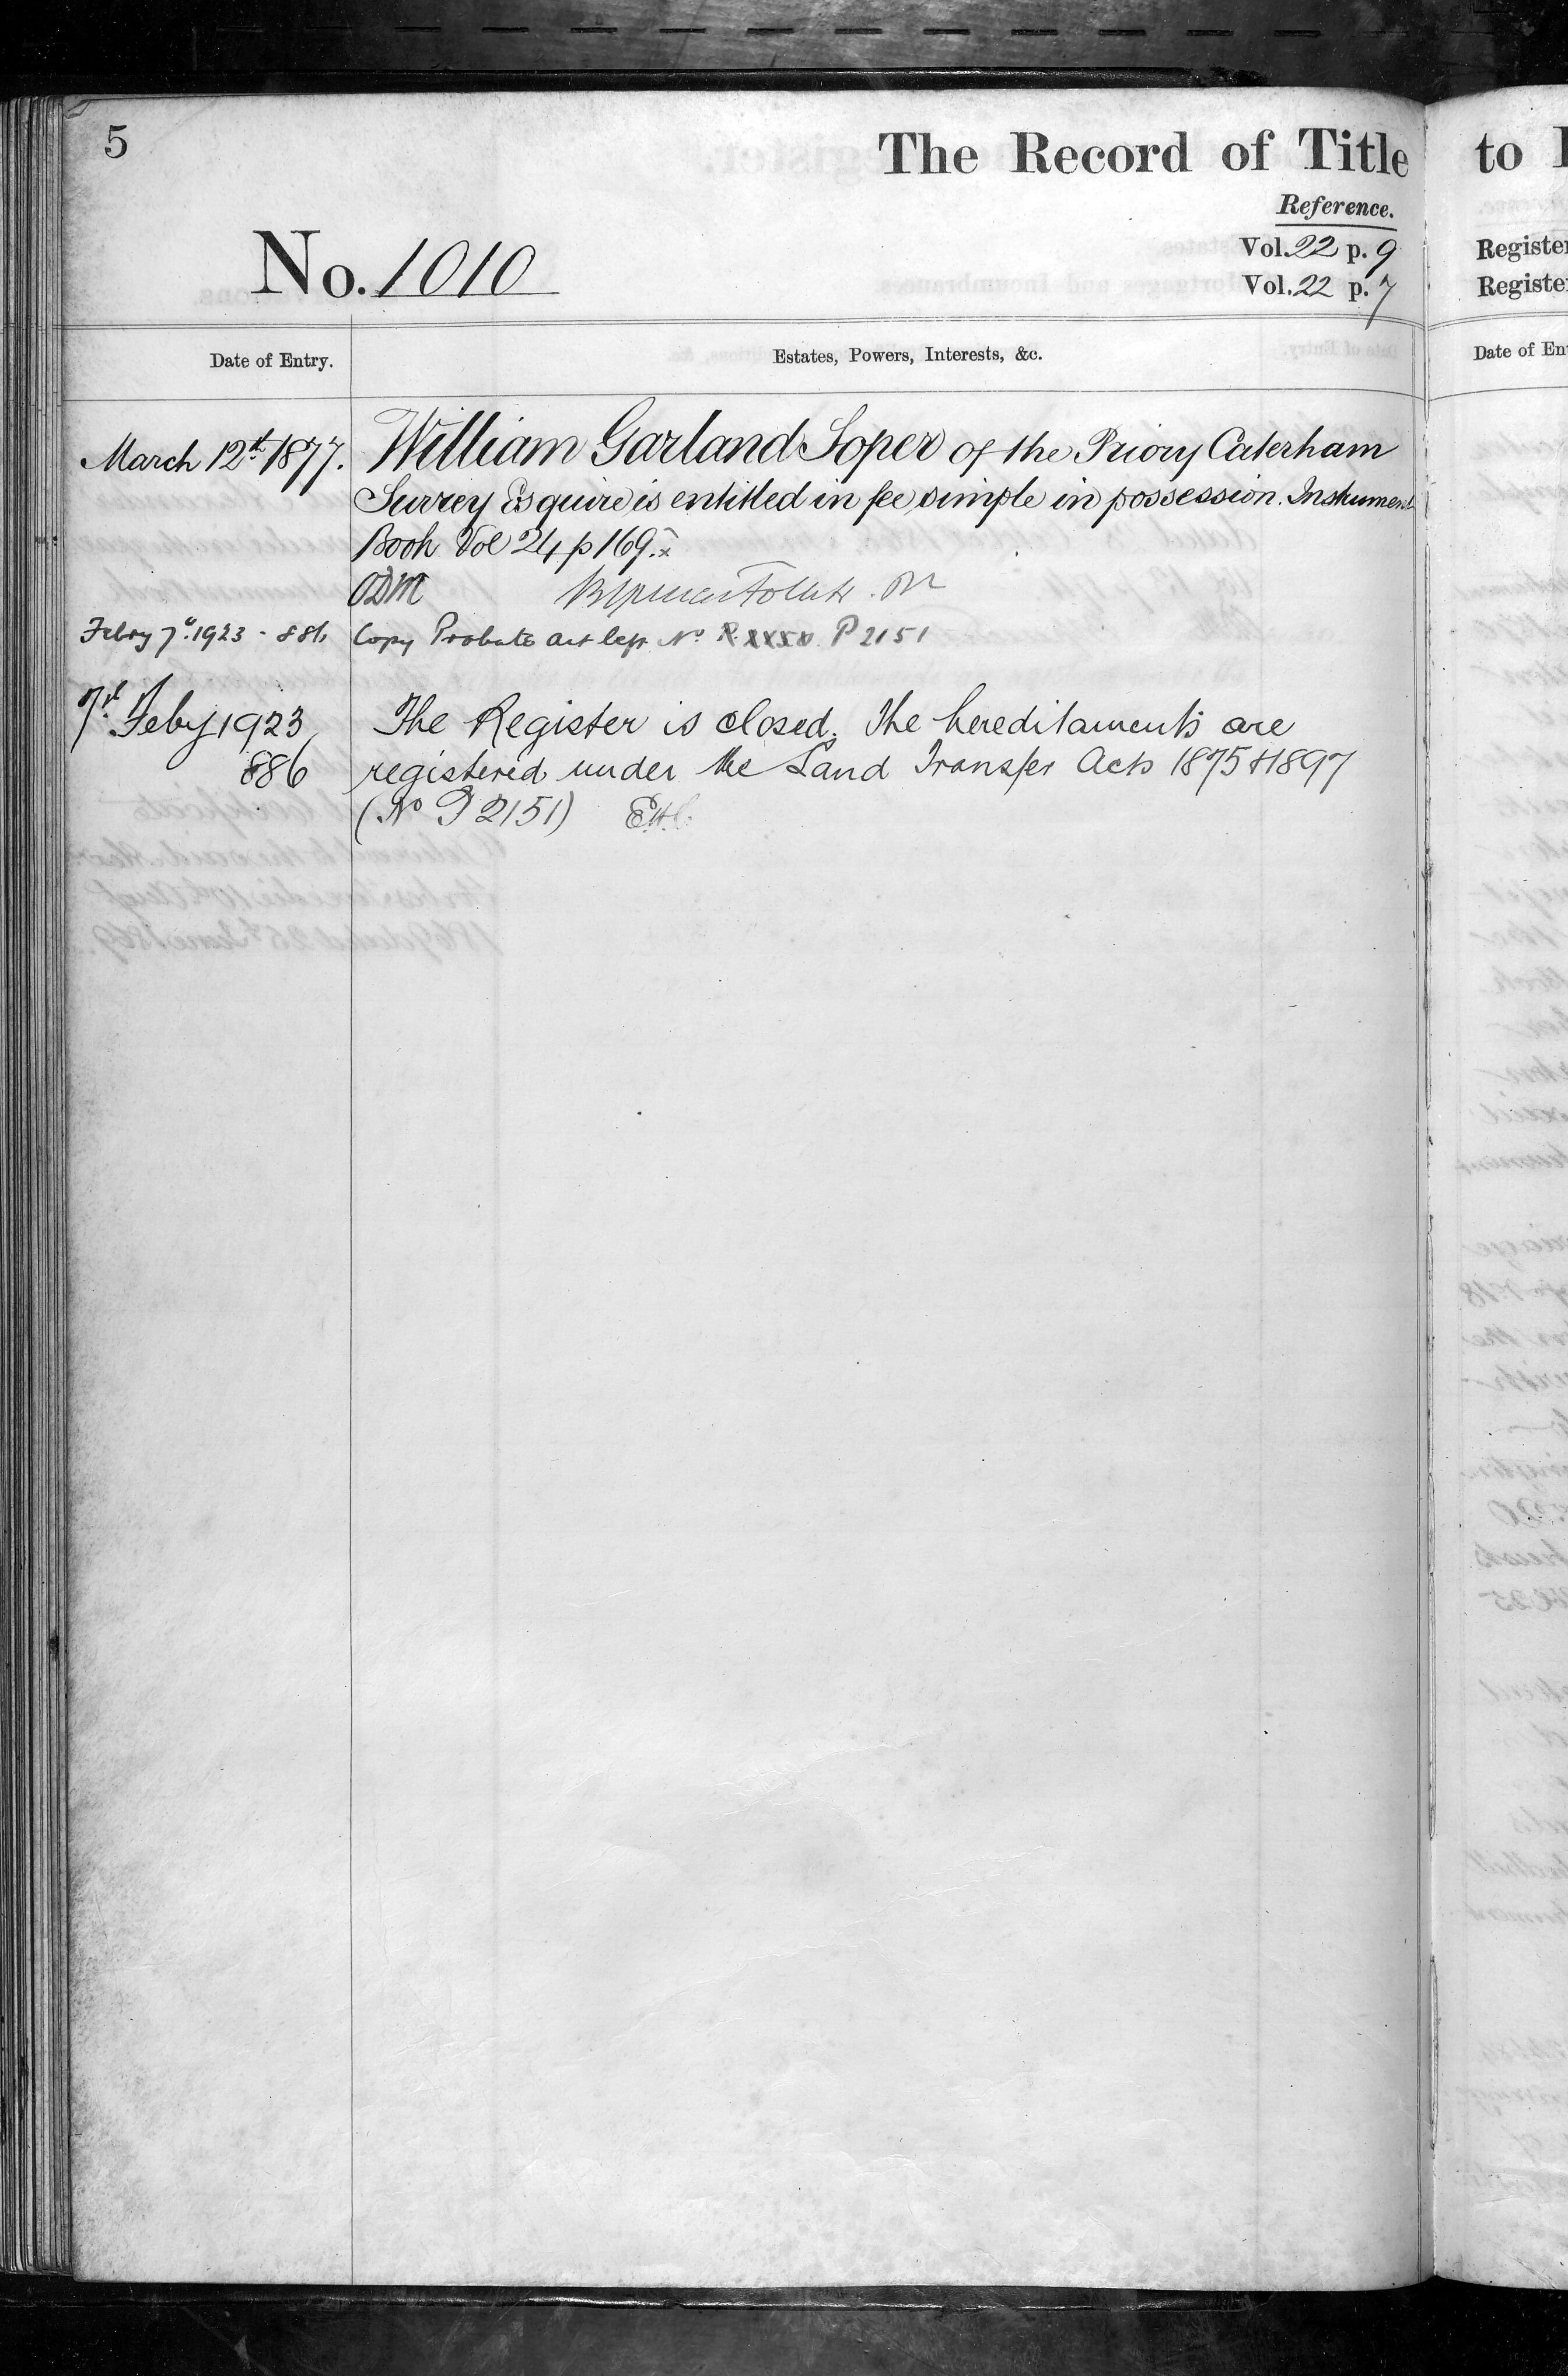 5
The Record of Title
to
Reference.
No. 1010
Vol. 22 p. 9
Vol. 22 p. 7
Date of Entry.
Estates, Powers, Interests, &c.
March 12th 1877.
William Garland Soper of the Priory Caterham
Surrey Esquire is entitled in fee simple in possession. Instrument
Book Vol 24 p 169. x
ODM
Febry 7th 1923 - 886
Copy Probate left No P 2151
7th Feby 1923
886
The Register is closed. The hereditaments are
registered under the Land Transfer Acts 1875 & 1897
(No P 2151)